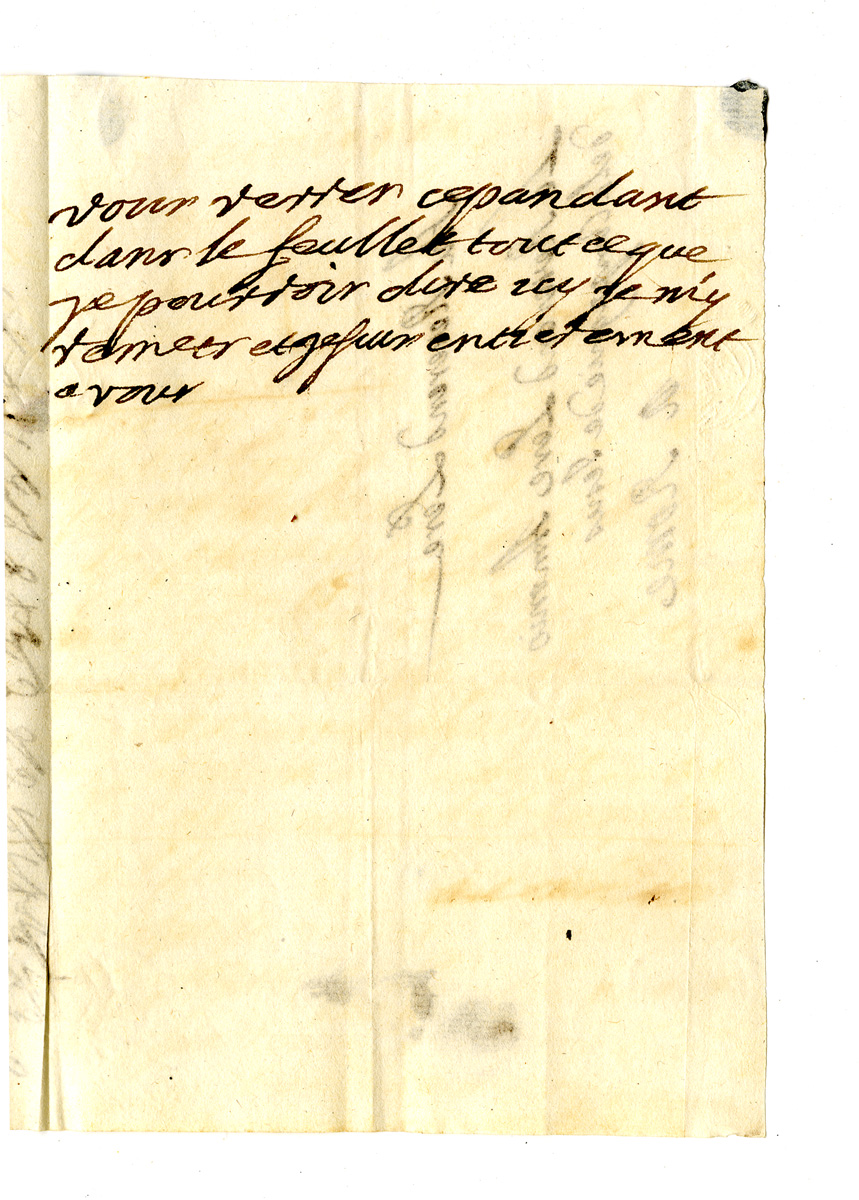 vous verres cepandant
dans le feullet tout ce que
je pourrois dire icy je m'y
remets et je suis entierement
a vous